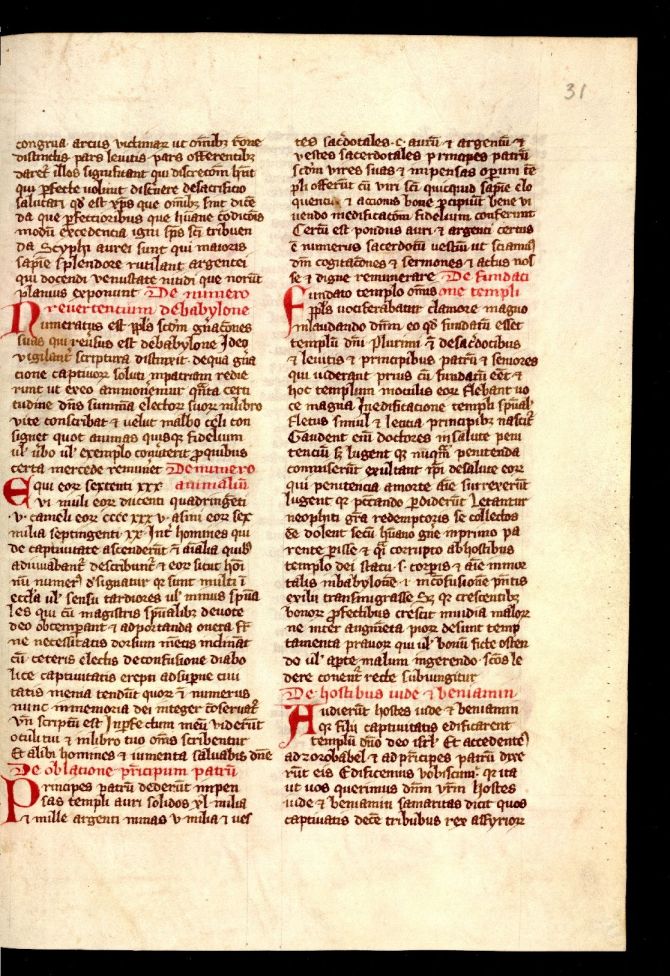 31
congrua artus victimar ut omibz rone
distinctis pars levitis pars offerentibz
daret illos significant qui discretom hnt
qui pfecte volunt discnere desacrificio
salutari qd est xps que omibz sint dice
da que pfectioribus que huane codicois
modu excedencia igni sps sci tribuen
da Scyphi aurei sunt qui maioris
sapie splendore rutilant argentei
qui docendi venustate nitidi que norut
planius exponunt De numero
revertentium debabylone
Numeratus est ppls scdm gnacones
suas qui reusus est debabylone Ideo
vigilant scriptura distinxit dequa gna
cione captivor soluti inpatriam redie
rint ut exeo ammoneimur qnta certi
tudine dns summa elector suor inlibro
vite conscribat et velut inalbo celi con
signet quot animas quisqz fidelium
ul vbo ul exemplo comiterit pquibus
certa mercede remunet De numero
Equi eor sexcenti xxx animalium
vi muli eor ducenti quadringeti
v cameli eor cccc xxx v asini eor sex
milia septingenti xx Int homines qui
de captivitate ascenderut et aialia quibz
adiuvabant describunt et eor sicut hoi
nu numer designatur qr sunt multi i
eccla ul sensu tardiores ul minus spua
les qui cu magistris spualibz devote
deo obtempant et adportanda onera fr
ne necessitatis dorsum mentis inclinat
cu ceteris electis deconfusione diabo
lice captivitatis erepti adsupne civi
tatis menia tendut quor et numerus
nunc inmemoria dei integer coservat
Vn scriptu est Inpfectum meu viderut
oculi tui et inlibro tuo oms scribentur
Et alibi homines et iumenta salvabis dne
De oblacione principum patru
Principes patru dederut inpen
sas templi auri solidos xl milia
et mille argenti minas v milia et ves
tes sacdotales c auru et argentu et
vestes sacerdotales principes patru
scdm vires suas et inpensas opum te
pli offerut cu viri sci quicquid sapie elo
quencie et accionis bone pcipiut bene vi
vendo inedificatom fidelium conferunt
Certu est pondus auri et argenti certus
e numerus sacerdotu vestiu ut sciamus
dm cogitacones et sermones et actus nos
se et digne remunerare De fundati
Fundato templo omis one templi
ppls vociferabatur clamore magno
inlaudando dnm eo qd fundatu esset
templu dni Plurimi et desacdotibus
et levitis et principibus patru et seniores
qui viderant prius cu fundatu eet et
hoc templum inoculis eor flebant vo
ce magna Inedificatione templi spual
fletus simul et leticia principibz nascit
Gaudent eni doctores insalute peni
tenciu sz lugent qr nuqm penitenda
commiserut exultant ipsi desalute eor
qui penitencia amorte aie surrexerut
lugent qr peccando pdiderut Letantur
neophiti gra redemptoris se collectos
de dolent secu huano gne inprimo pa
rente pisse et qsi corrupto abhostibus
templo dei statu s corpis et aie inmor
talis inbabylone et inconfusione pntis
exilii transmigrasse Sz qr crescentibz
bonor pfectibus crescit invidia malor
ne inter augmeta pior desint temp
tamenta pravor qui ul bonu ficte osten
do ul apte malum ingerendo scos le
dere conent recte subiungitur
De hostibus iude et beniamin
Audierut hostes iude et beniamin
qr filii captivitatis edificarent
templu dno deo isrl Et accedentes
adzorobabel et adprincipes patru dixe
rut eis Edificemus vobiscum qr ita
ut vos querimus dnm vrm hostes
iude et beniamin samaritas dicit quos
captivatis dece tribubus rex assyrior